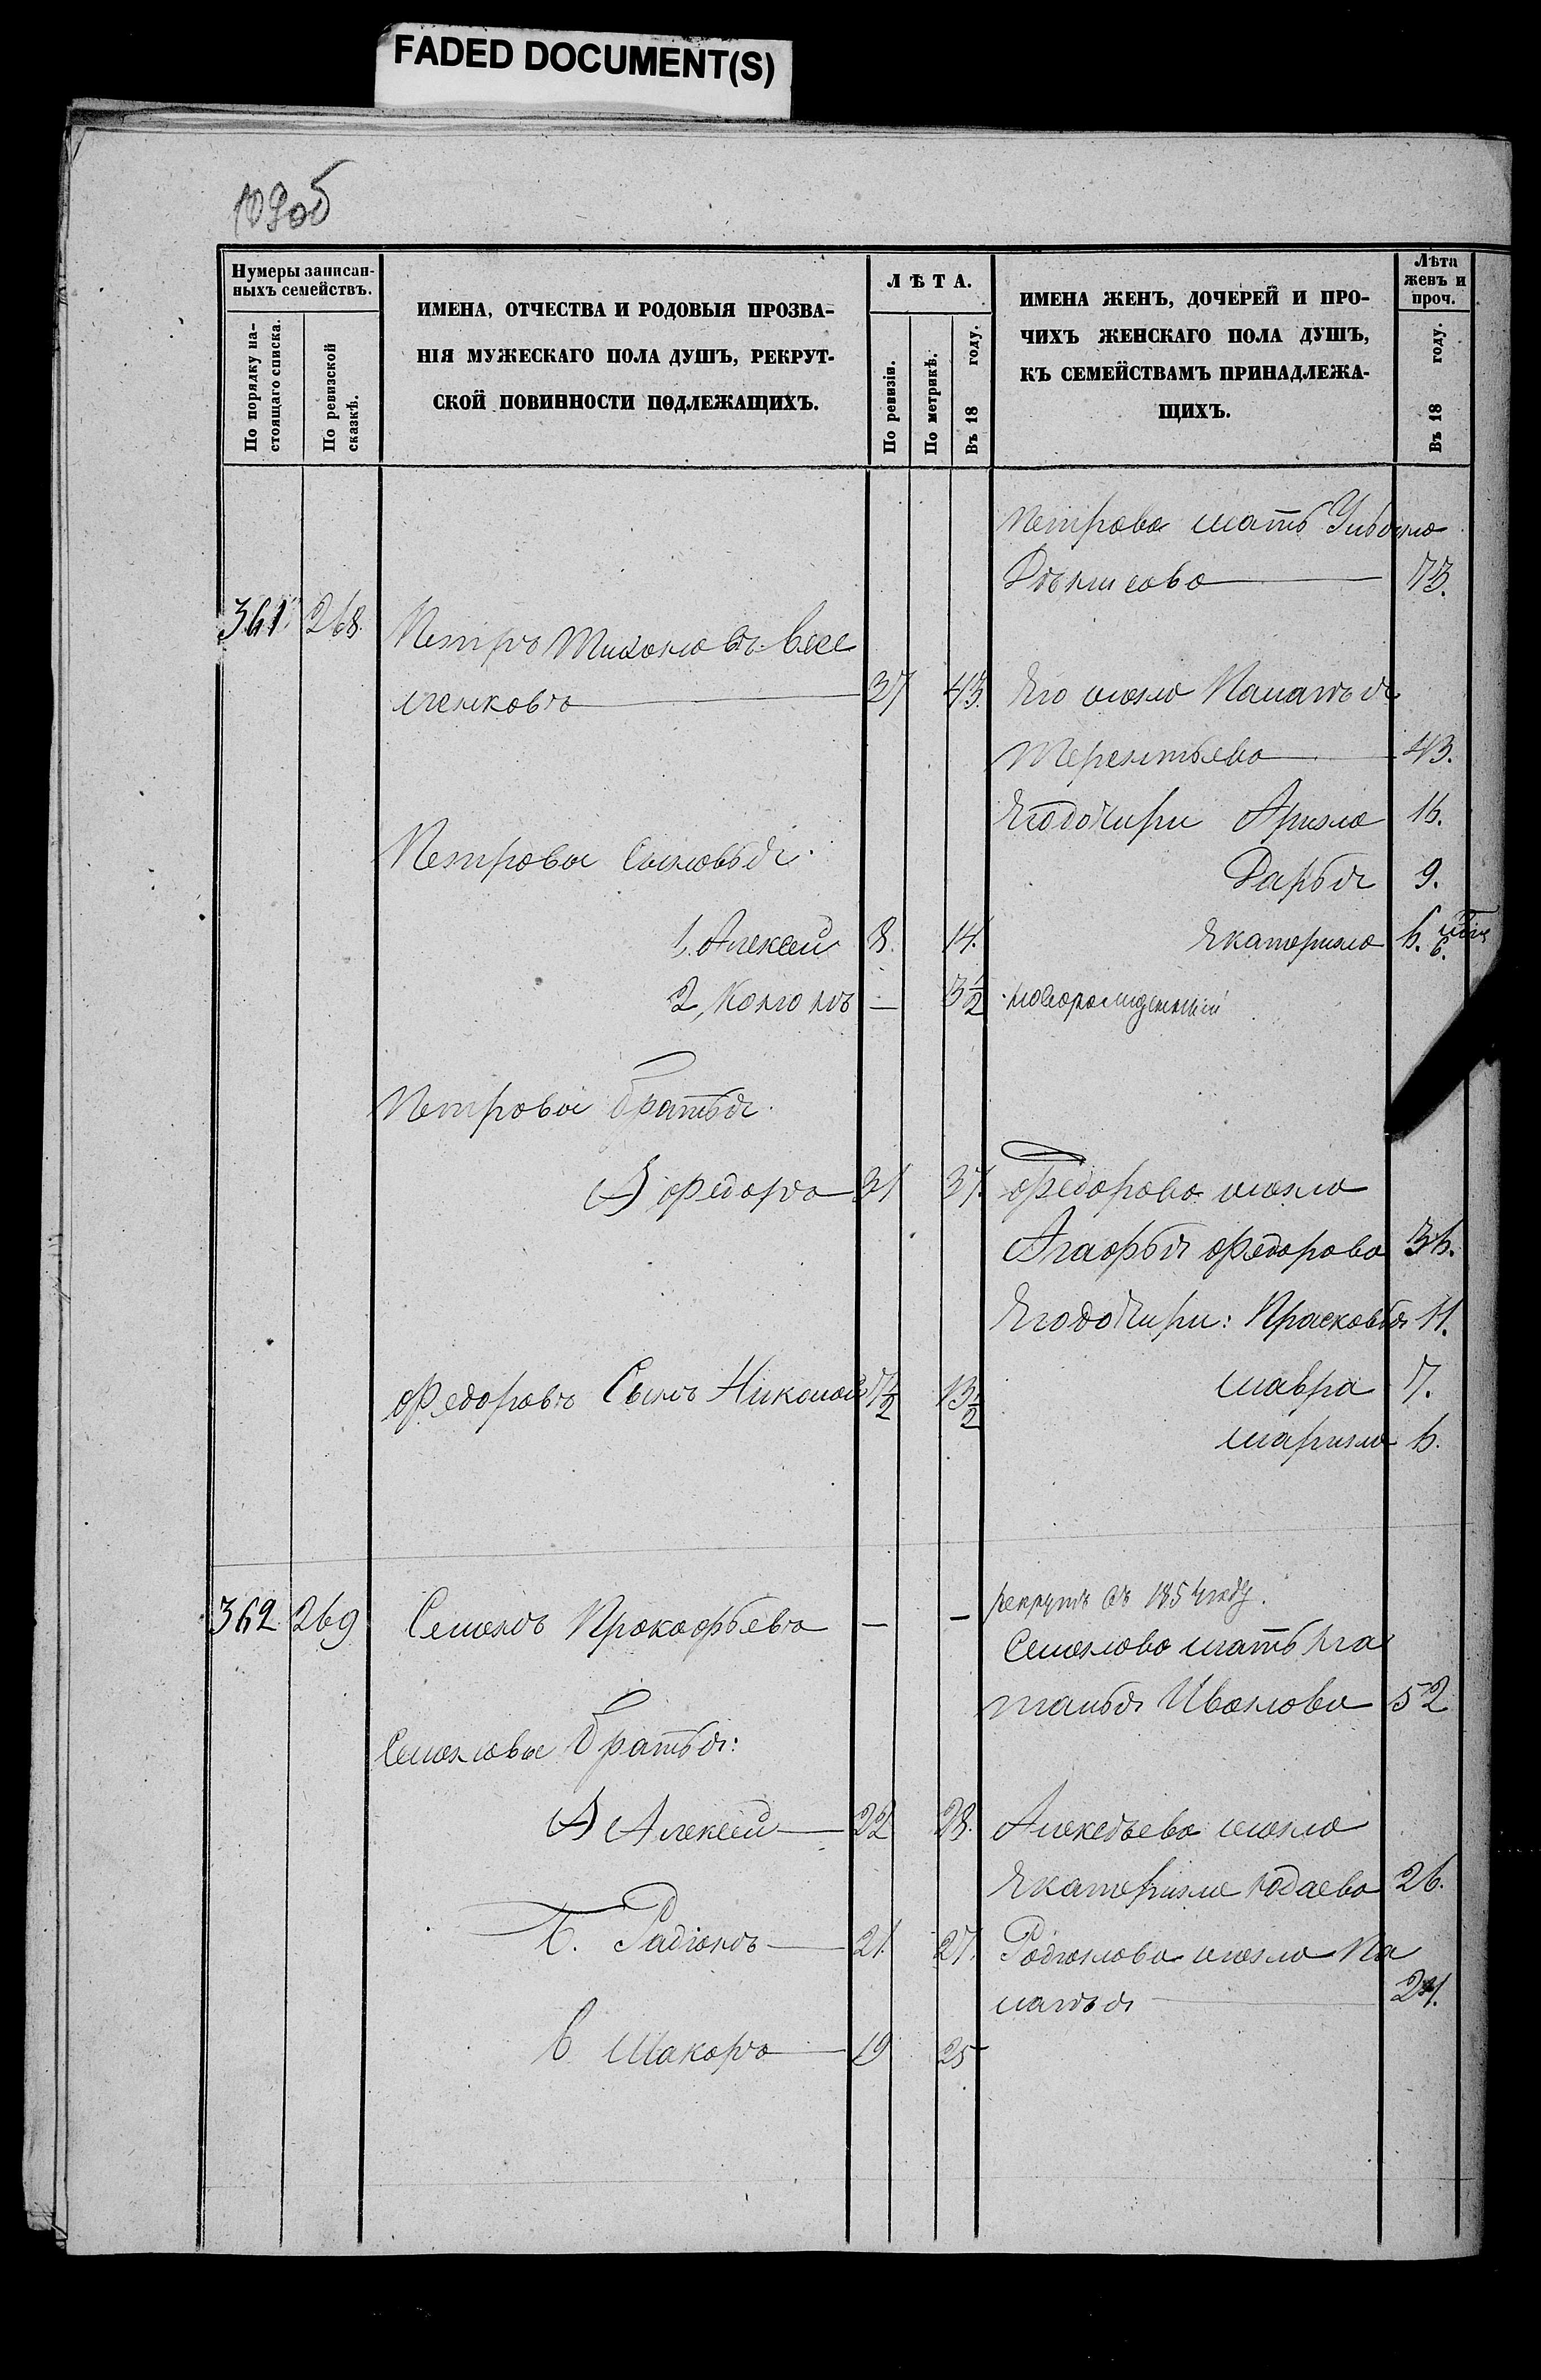 FADED DOCUMENT(S)
109об
Нумеры записан-
ныхъ семействъ.
По порядку на-
стоящаго списка.
По ревизской
сказкѣ.
ИМЕНА, ОТЧЕСТВА И РОДОВЫЯ ПРОЗВА-
НІЯ МУЖЕСКАГО ПОЛА ДУШЪ, РЕКРУТ-
СКОЙ ПОВИННОСТИ ПОДЛЕЖАЩИХЪ.
ЛѢТА.
По ревизіи.
По метрикѣ.
Въ 18 году.
ИМЕНА ЖЕНЪ, ДОЧЕРЕЙ И ПРО-
ЧИХЪ ЖЕНСКАГО ПОЛА ДУШЪ,
КЪ СЕМЕЙСТВАМЪ ПРИНАДЛЕЖА-
ЩИХЪ.
Лѣта
женъ и
проч.
Въ 18 году.
Петрова мать
73.
361. 268. Петръ Тихоновъ Весе
ленковъ 37 43. Его жена Палагѣя
Терентьева 43.
Его дочири Арина 16.
Петровы Сыновья
Дарья 9.
1, Алексей 8. 14. Екатерина 6.
2, Кононъ — 3½ новорожденный
Петровы братья
А) Федоръ 31 37. Федорова жена
Агафья Федорова 36.
Его дочири: Прасковья 11.
Федоровъ Сынъ Николай 7½ 13½ Мавра 7.
Марина 6.
рекрутъ въ 1854 году.
362. 269 Семенъ Прокофьевъ — —
Семенова мать На
талья Иванова 52
Семеновы братья:
А) Алексей 22 28. Алексеева жена
Екатерина 26.
Б. Радіонъ 21. 27. Родіонова жена Па
лагѣя
В Макаръ 19 25